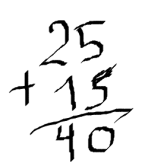 25
+ 15
40